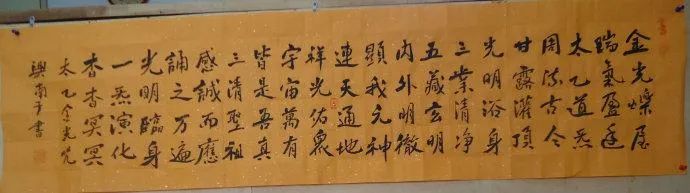 金光爍屋
瑞氣盈庭
太乙道炁
周流古今
甘露灌頂
光明浴身
三業清净
五藏玄明
內外明徹
顯我元神
連天通地
祥光佑眾
宇宙萬有
皆是吾真
三清聖祖
感誠而應
誦之万遍
光明臨身
一炁演化
杳杳冥冥
太乙金光咒
興南子書